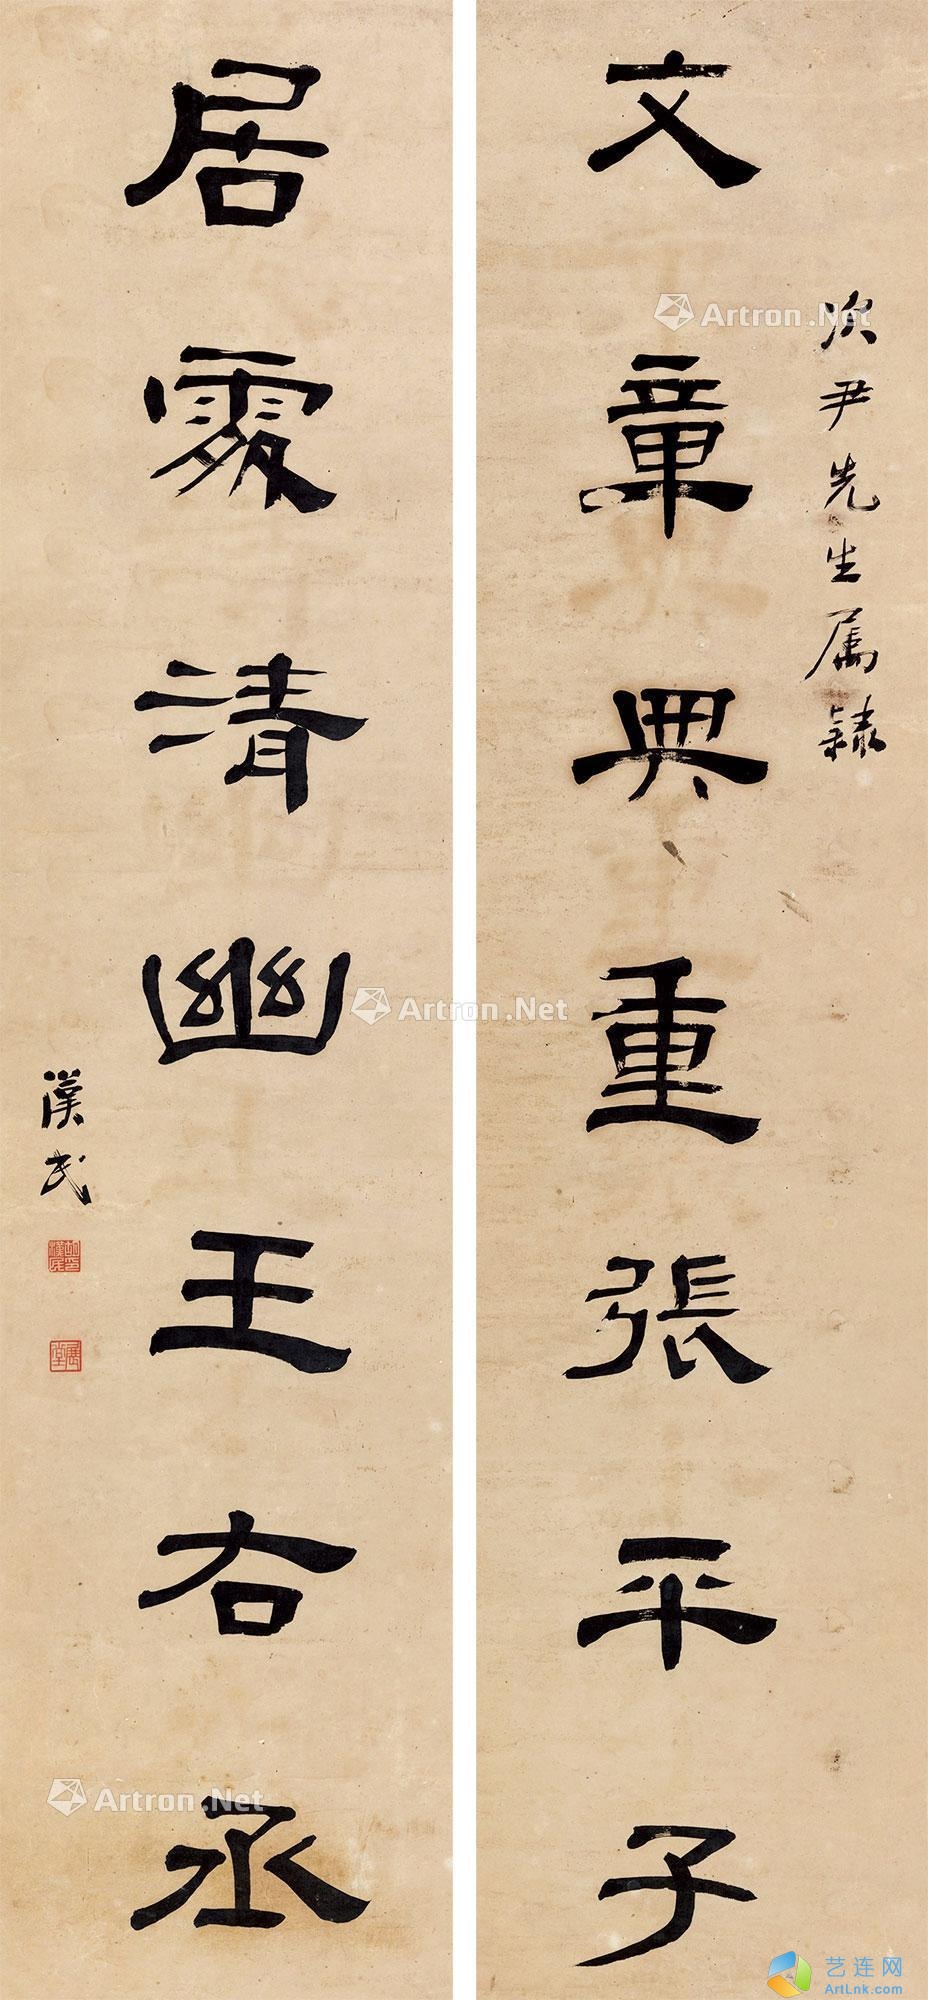 次尹先生属隸
文章典重張平子
居處清幽王右丞
漢民
胡漢民印
展堂
Artron.Net
Artron.Net
Artron.Net
艺连网
ArtLnk.com